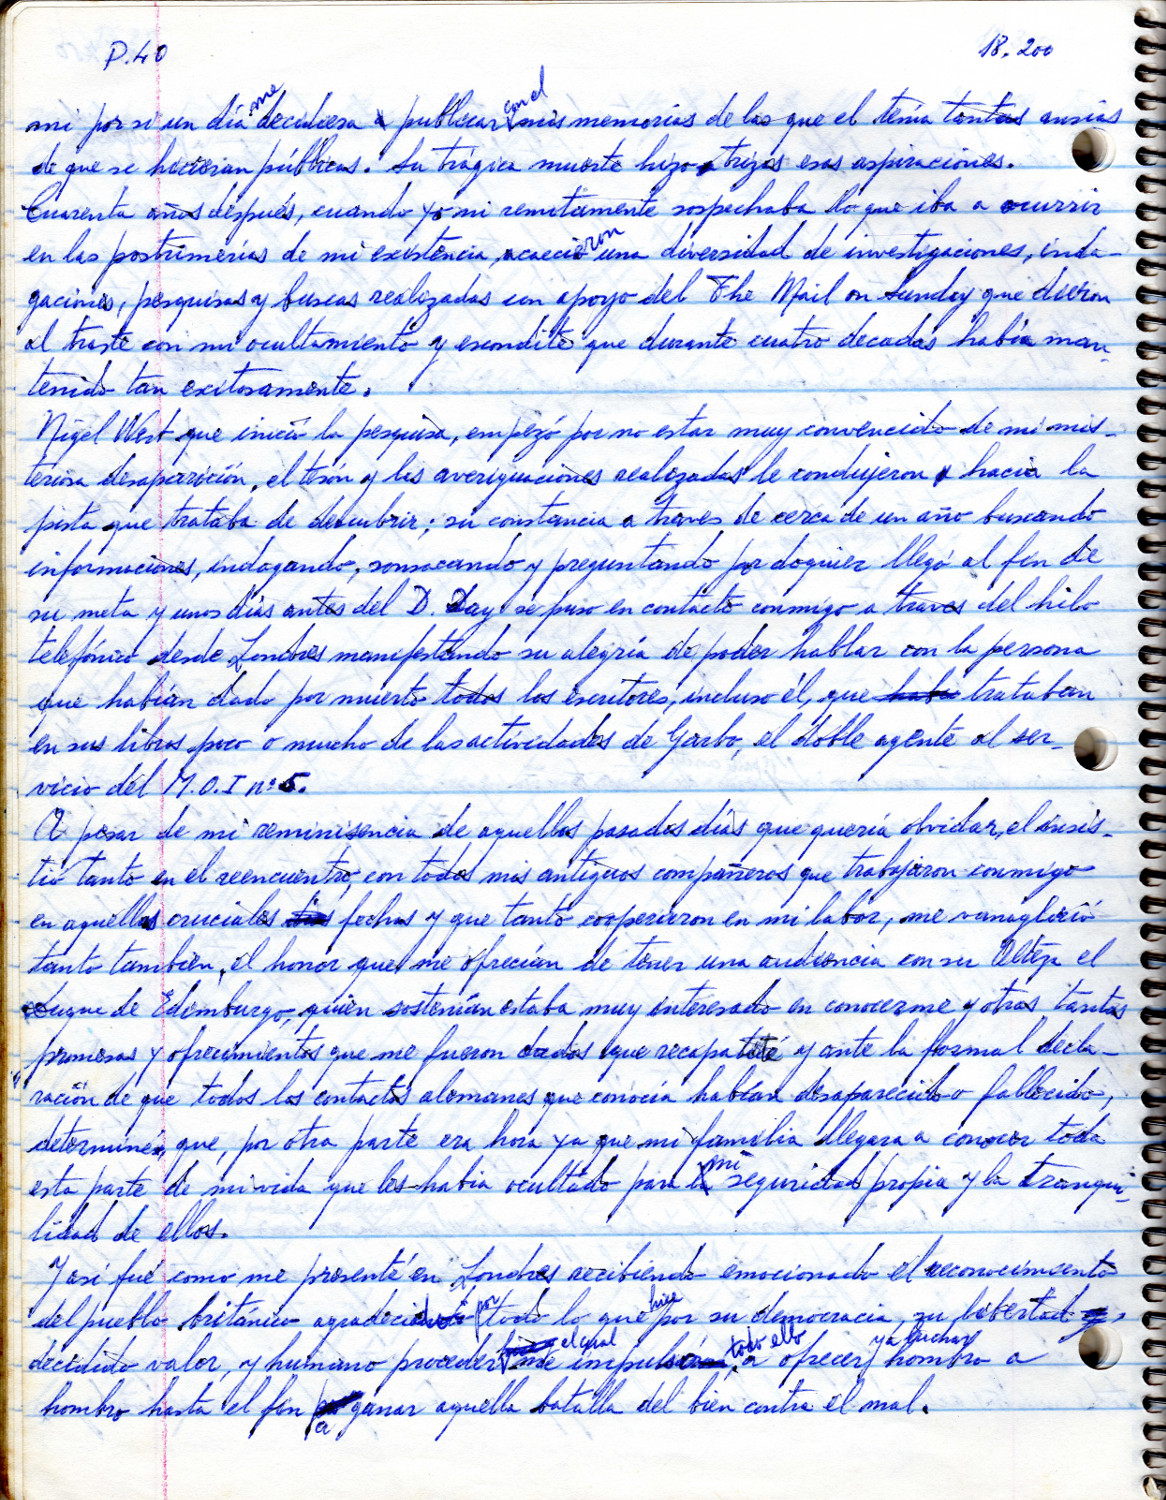 P.40 18.200
mi por si un día me decidiera a publicar con el mis memorias de las que el tenía tantas ansias
de que se hicieran públicas. Su trágica muerte hizo trizas esas aspiraciones.
Cuarenta años después, cuando yo ni remotamente sospechaba lo que iba a ocurrir
en las postrimerías de mi existencia, acaecieron una diversidad de investigaciones, inda-
gaciones, pesquisas y buscas realizadas con apoyo del The Mail on Sunday que dieron
al traste con mi ocultamiento y escondite que durante cuatro decadas había man-
tenido tan exitosamente.
Nigel West que inició la pesquisa, empezó por no estar muy convencido de mi mis-
teriosa desaparición, el tesón y las averiguaciones realizadas le condujeron hacia la
pista que trataba de descubrir; su constancia a traves de cerca de un año buscando
informaciones, indagando, sonsacando y preguntando por doquier llegó al fin de
su meta y unos días antes del D. Day se puso en contacto conmigo a traves del hilo
telefónico desde Londres manifestando su alegría de poder hablar con la persona
que habían dado por muerto todos los escritores, incluso él, que trataban
en sus libros poco o mucho de las actividades de Garbo, el doble agente al ser-
vicio del M.O.I nº 5.
A pesar de mi reminisencia de aquellos pasados días que quería olvidar, el insis-
tió tanto en el reencuentro con todos mis antiguos compañeros que trabajaron conmigo
en aquellas cruciales fechas y que tanto cooperaron en mi labor, me vanaglorió
tanto tambien, el honor que me ofrecían de tener una audiencia con su Alteza el
Duque de Edimburgo, quien sostenían estaba muy interesado en conocerme y otras tantas
promesas y ofrecimientos que me fueron dados que recapacité y ante la formal decla-
ración de que todos los contactos alemanes que conocía habían desaparecido o fallecido,
determiné, que, por otra parte era hora ya que mi familia llegara a conocer toda
esta parte de mi vida que les había ocultado para mi seguridad propia y la tranqui-
lidad de ellos.
Y así fué como me presenté en Londres recibiendo emocionado el reconocimiento
del pueblo británico agradeciendo por todo lo que hice por su democracia, su libertad,
decidido valor, y humano proceder el cual me impulsó todo ello a ofrecer y a luchar hombro a
hombro hasta el fin a ganar aquella batalla del bien contra el mal.